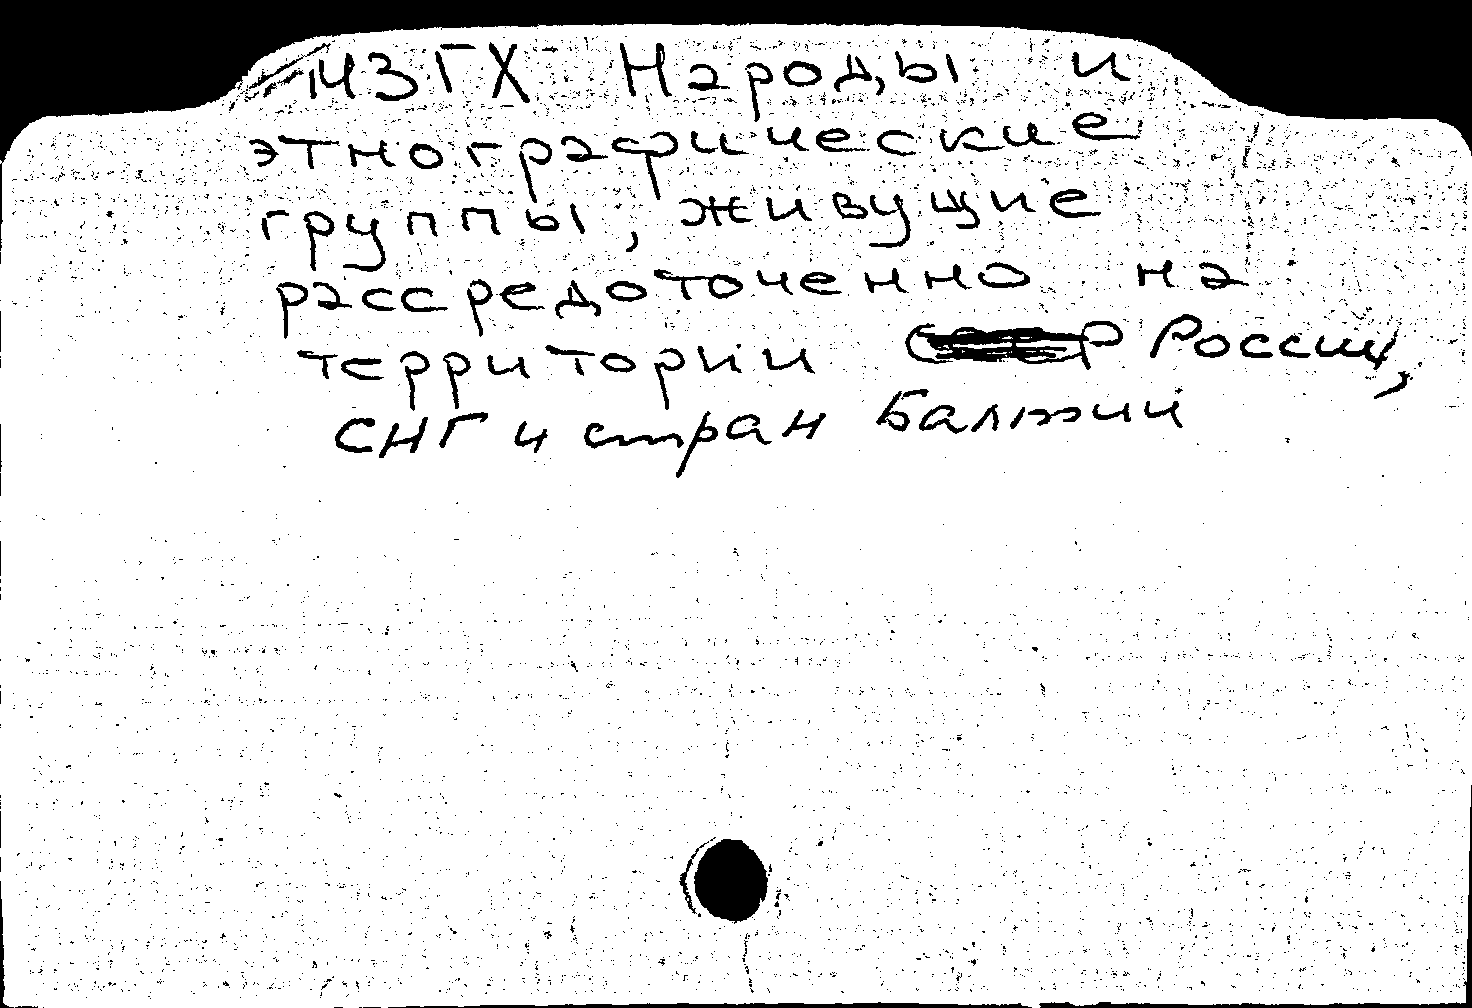 ЧЗГХ Народы и
этнографические
группы, живущие
рассредоточенно на
территории России,
СНГ и стран Балтии